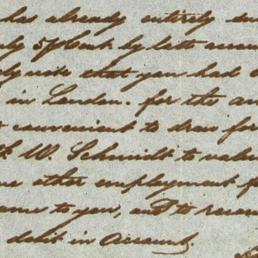 has already entirely
5 p Cent. by
note that you had
in London. for the
convenient to draw for
W. Schmidt to
other employment
to you, and to
debit in Account,